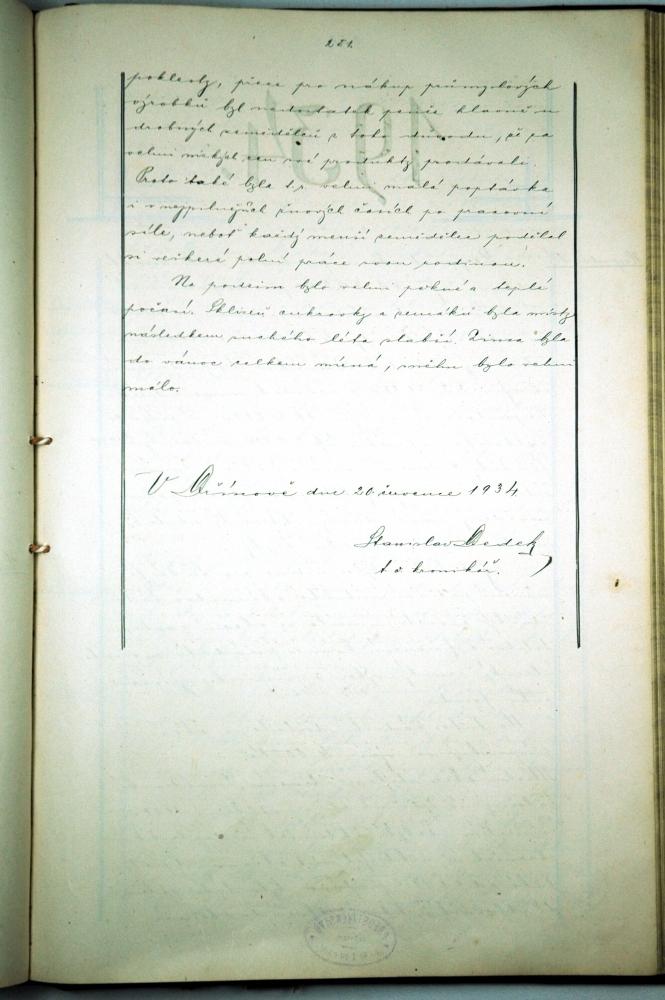 251.
poklesly, přece pro nákup průmyslových
výrobků byl nedostatek peněz hlavně u
drobných zemědělců z toho důvodu, že za
velmi nízkých cen své produkty prodávali.
Proto také byla t.r. velmi malá poptávka
i v nejpilnějších žňových časích po pracovní
síle, neboť každý menší zemědělec podělal
si veškeré polní práce svou rodinou.
Na podzim bylo velmi pěkné a teplé
počasí. Sklizeň cukrovky a zemáků byla místy
následkem suchého léta slabší. Zima byla
do vánoc celkem mírná, sněhu bylo velmi
málo.
V Dřínově dne 20. července 1934
Stanislav Dedek
t. č. kronikář.